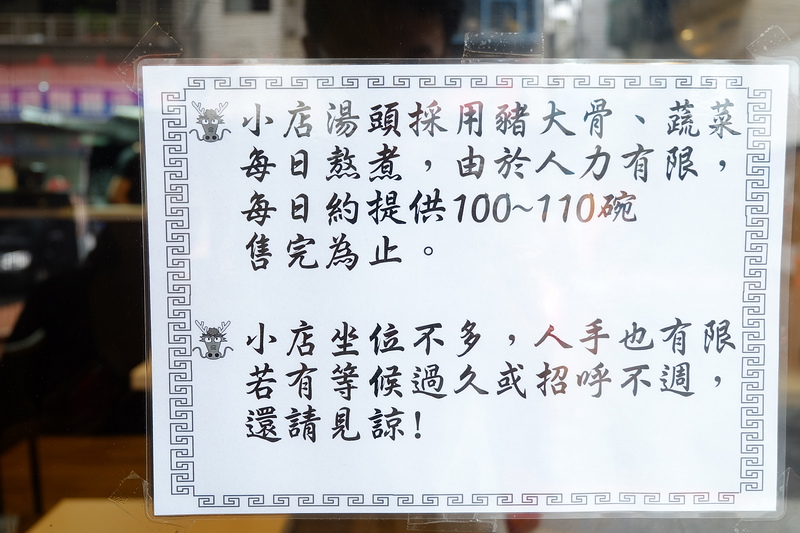 小店湯頭採用豬大骨、蔬菜
每日熬煮，由於人力有限，
每日約提供100~110碗
售完為止。
小店坐位不多，人手也有限
若有等候過久或招呼不週，
還請見諒!